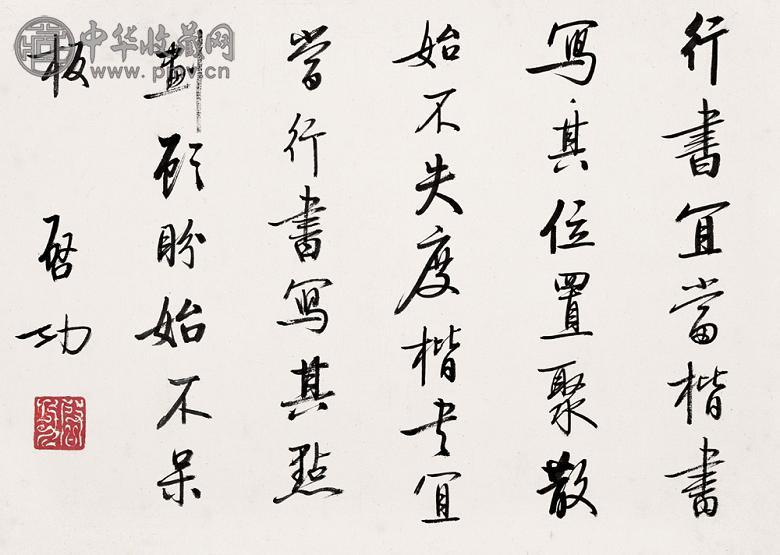 行書宜當楷書
寫其位置聚散
始不失度楷书宜
當行書寫其點
畫顧盼始不呆
板
啟功
中华收藏网
www.pmv.cn